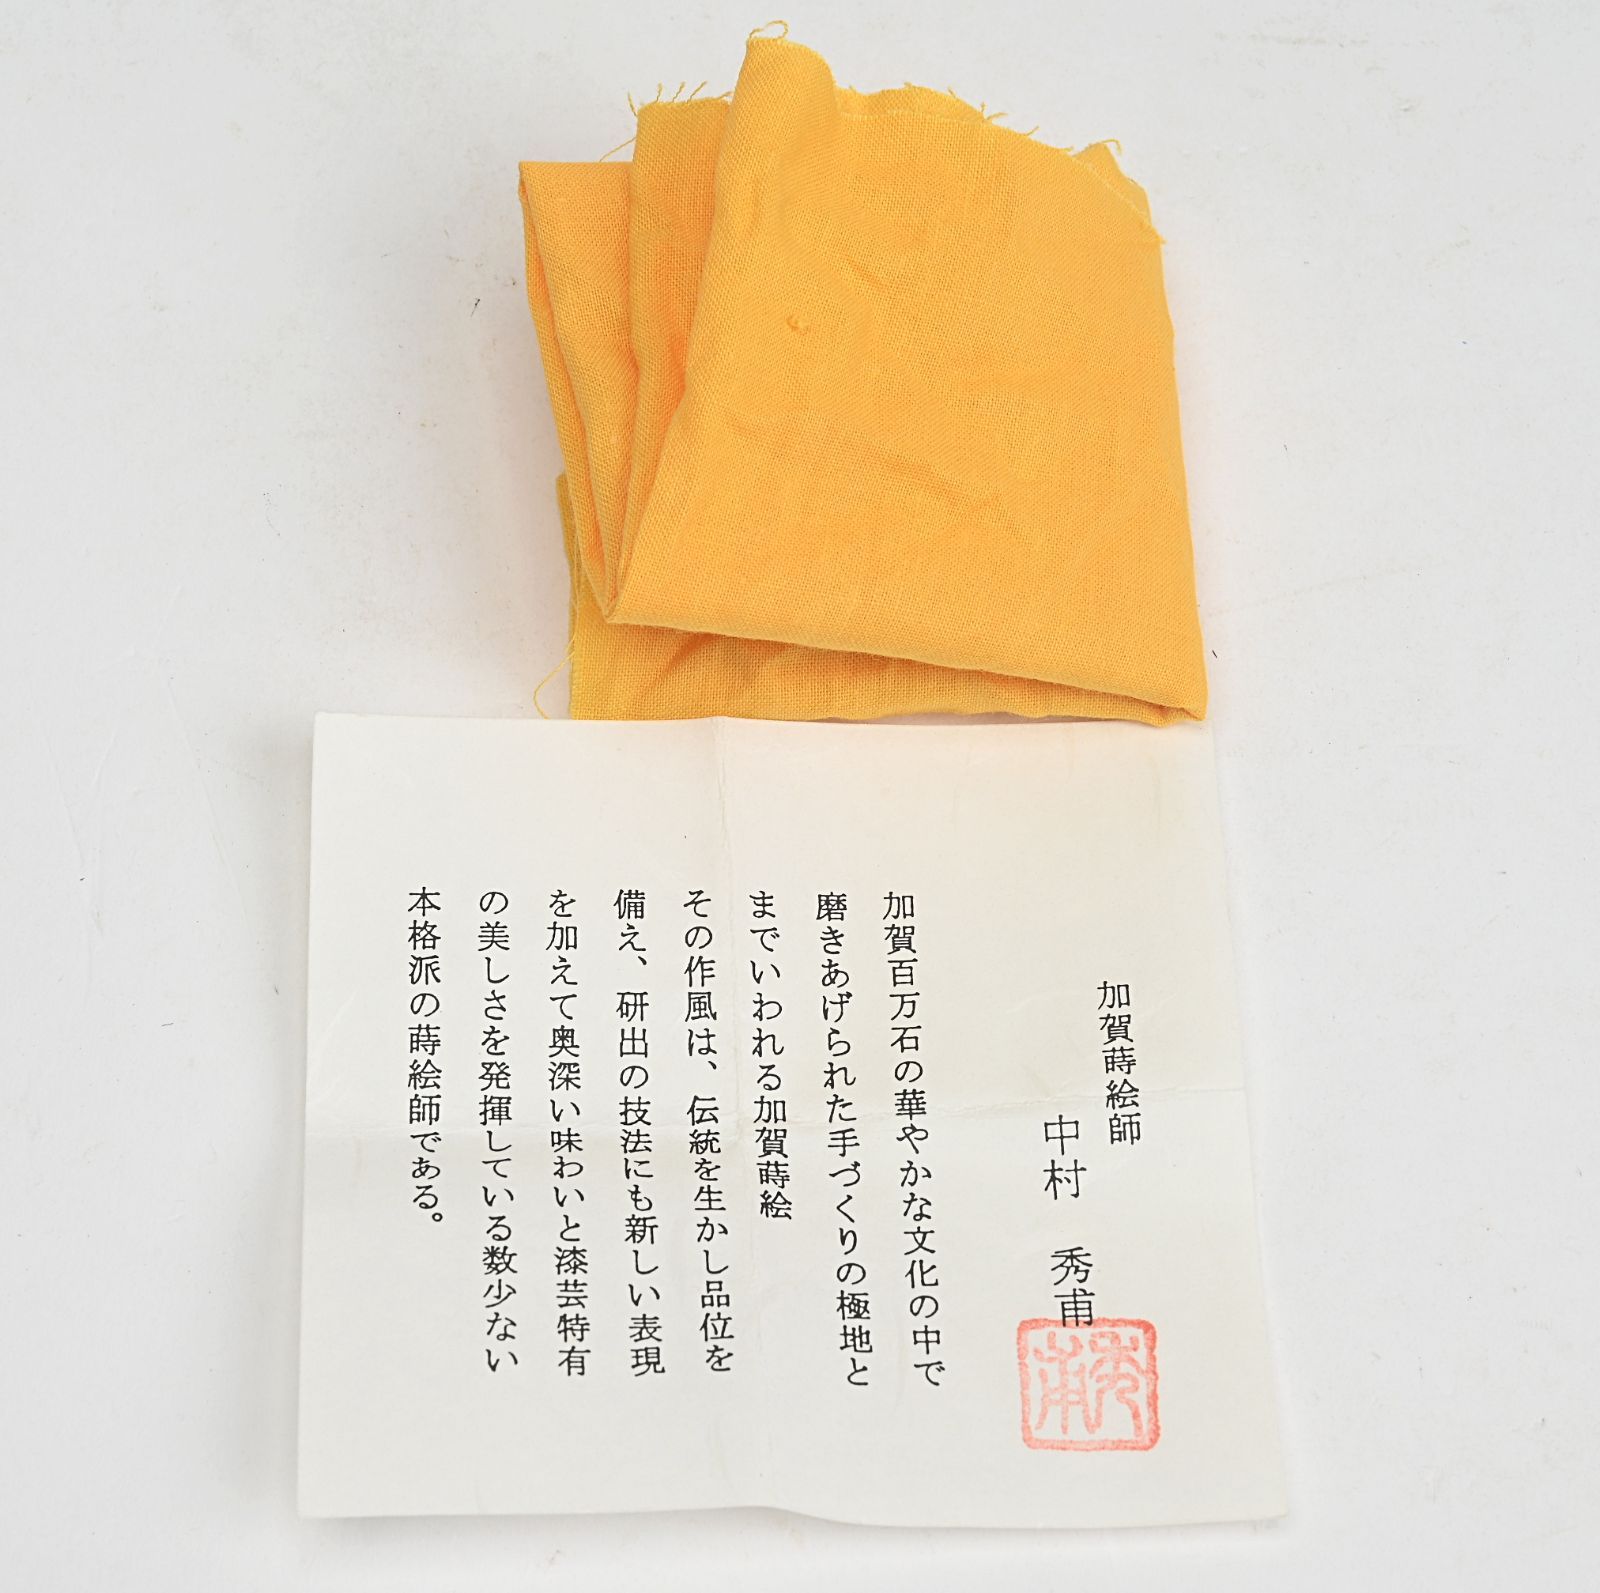 加賀蒔絵師
中村 秀甫
秀甫
加賀百万石の華やかな文化の中で
磨きあげられた手づくりの極地と
までいわれる加賀蒔絵
その作風は、伝統を生かし品位を
備え、研出の技法にも新しい表現
を加えて奥深い味わいと漆芸特有
の美しさを発揮している数少ない
本格派の蒔絵師である。